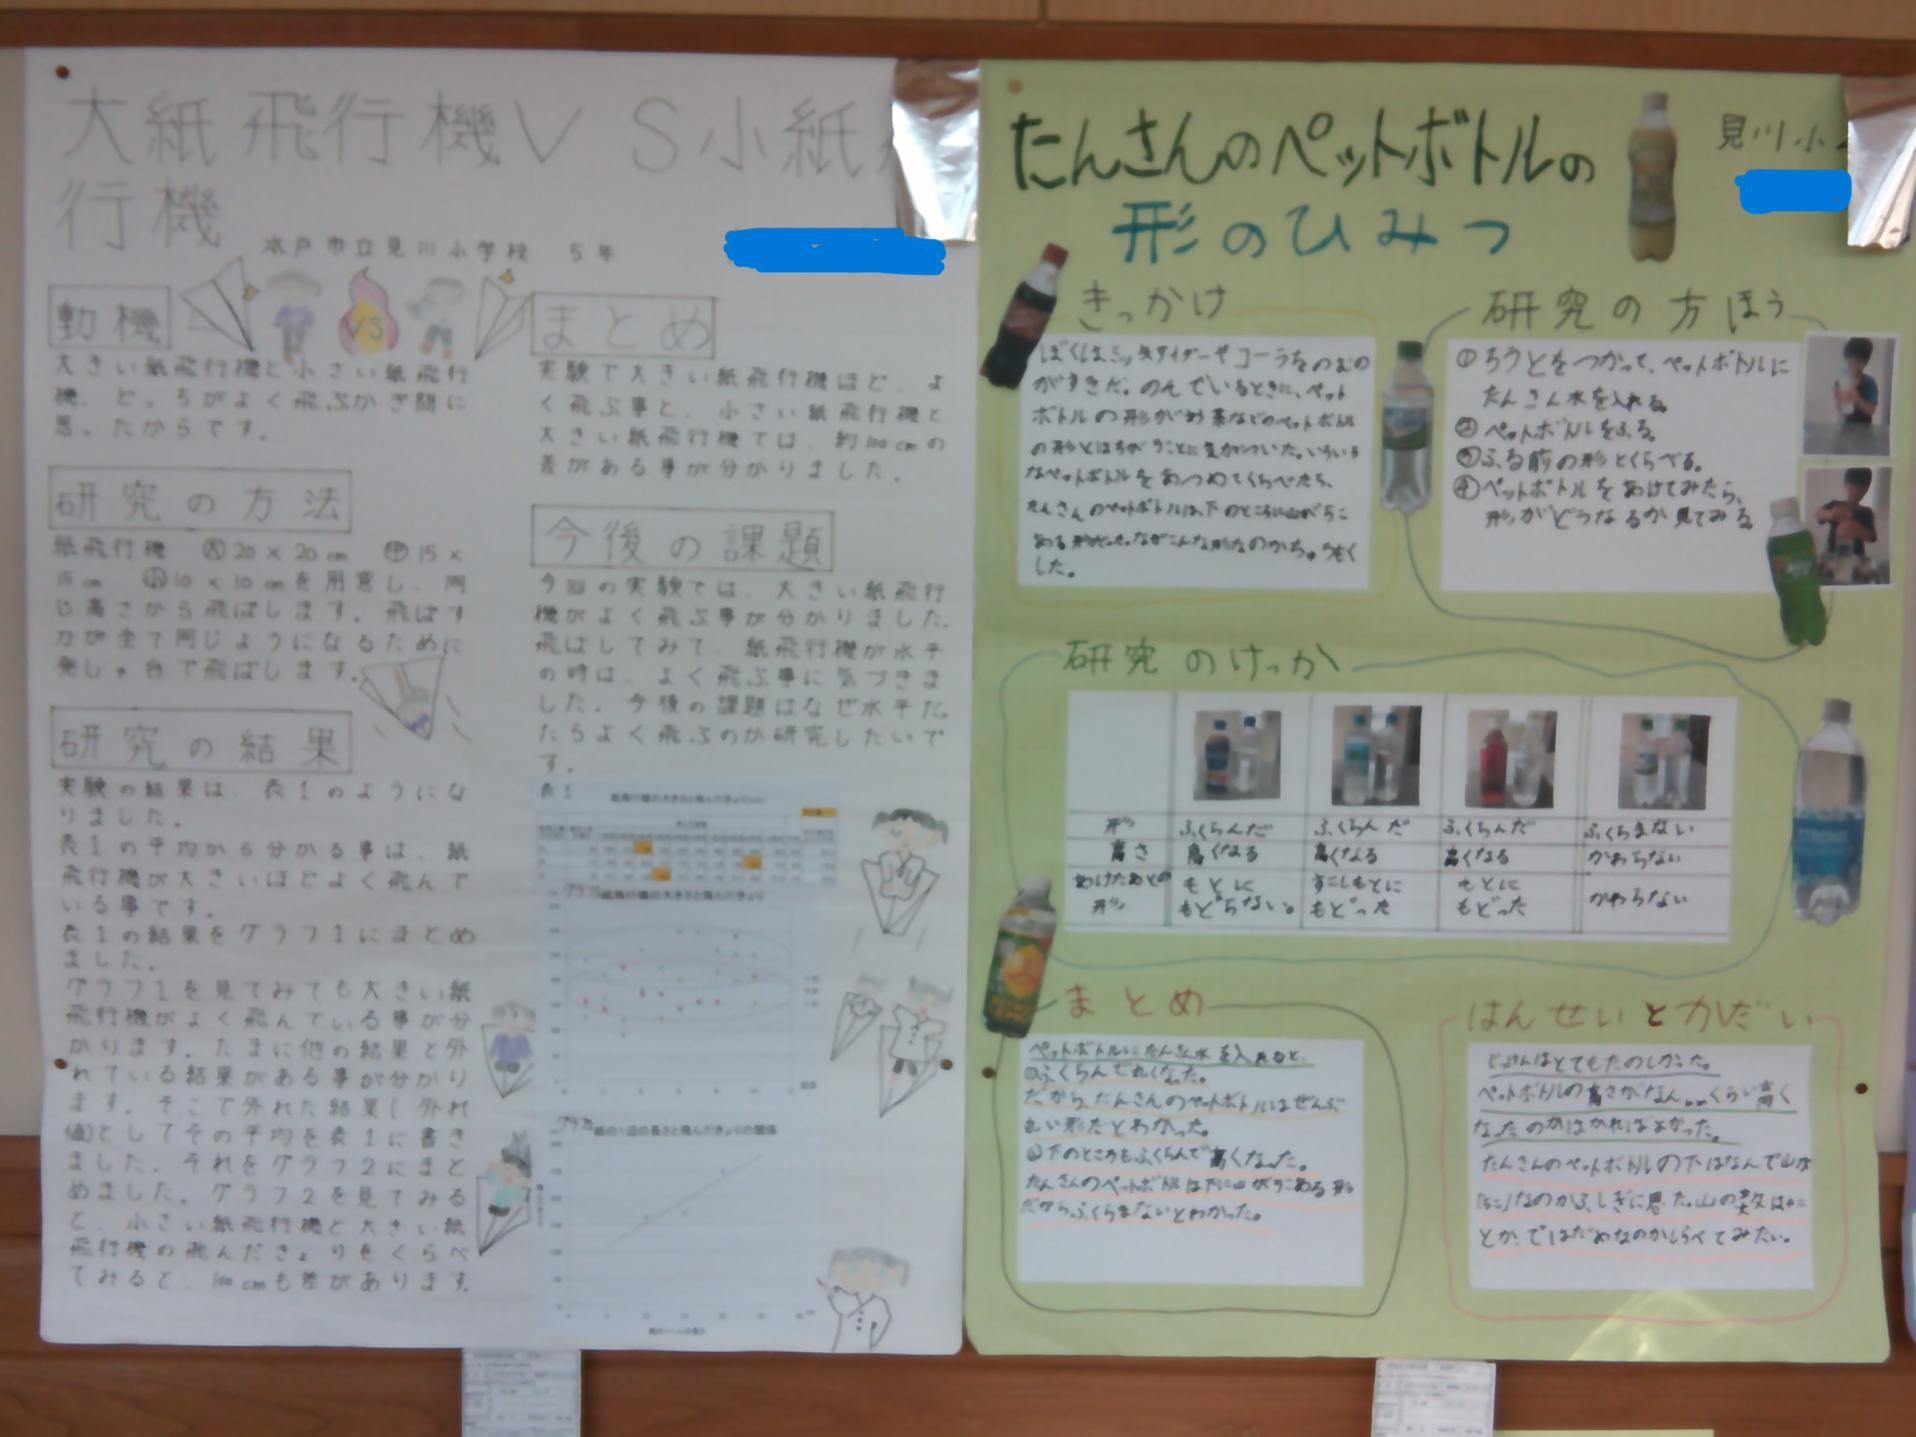 大紙飛行機VS小紙
行機
水戸市立見川小学校 5年
動機
VS
大きい紙飛行機と小さい紙飛行
機、どっちがよく飛ぶかぎ問に
思ったからです。
研究の方法
紙飛行機 大20×20cm 中15×
15cm 小10×10cmを用意し、同
じ高さから飛ばします。飛ばす
力が全て同じようになるために
発しゃ台で飛ばします。
研究の結果
実験の結果は、表1のようにな
りました。
表1の平均から分かる事は、紙
飛行機が大きいほどよく飛んで
いる事です。
表1の結果をグラフ1にまとめ
ました。
グラフ1を見てみても大きい紙
飛行機がよく飛んでいる事が分
かります。たまに他の結果と外
れている結果がある事が分かり
ます。そこで外れた結果(外れ
値)としてその平均を表1に書き
ました。それをグラフ2にまと
めました。グラフ2を見てみる
と、小さい紙飛行機と大きい紙
飛行機の飛んだきょりをくらべ
てみると、100cmも差があります。
まとめ
実験で大きい紙飛行機ほど、よ
く飛ぶ事と、小さい紙飛行機と
大きい紙飛行機では、約100cmの
差がある事が分かりました。
今後の課題
今回の実験では、大きい紙飛行
機がよく飛ぶ事が分かりました。
飛ばしてみて、紙飛行機が水平
の時は、よく飛ぶ事に気づきま
した。今後の課題はなぜ水平だっ
たらよく飛ぶのか研究したいで
す。
表1
紙飛行機の大きさと飛んだきょり(cm)
グラフ1 紙飛行機の大きさと飛んだきょり
グラフ2 紙の1辺の長さと飛んだきょりの関係
たんさんのペットボトルの
形のひみつ
見川小
きっかけ
ぼくはミツ矢サイダーやコーラをのむの
がすきだ。のんでいるときに、ペット
ボトルの形がお茶などのペットボトル
の形とはちがうことに気がついた。いろいろ
なペットボトルをあつめてくらべたら、
たんさんのペットボトルは、下のところに山が5こ
ある形だった。なぜこんな形なのかちょうせんく
した。
研究の方ほう
①ろうとをつかって、ペットボトルに
たんさん水を入れる。
②ペットボトルをふる。
③ふる前の形とくらべる。
④ペットボトルをあけてみたら、
形がどうなるか見てみる。
研究のけっか
形 ふくらんだ ふくらんだ ふくらんだ ふくらまない
高さ 高くなる 高くなる 高くなる かわらない
あけたあとの形 もとにもどらない。 すこしもとにもどった もとにもどった かわらない
まとめ
ペットボトルにたんさん水を入れると、
①ふくらんで丸くなった。
だから、たんさんのペットボトルはぜんぶ
丸い形だとわかった。
②下のところもふくらんで高くなった。
たんさんのペットボトルは下に山が5こある形
だからふくらまないとわかった。
はんせいとかだい
じっけんはとてもたのしかった。
ペットボトルの高さがなんcmくらい高く
なったのかはかればよかった。
たんさんのペットボトルの下はなんで山が
5こなのかふしぎに思った。山の数は4こ
とかではだめなのかしらべてみたい。